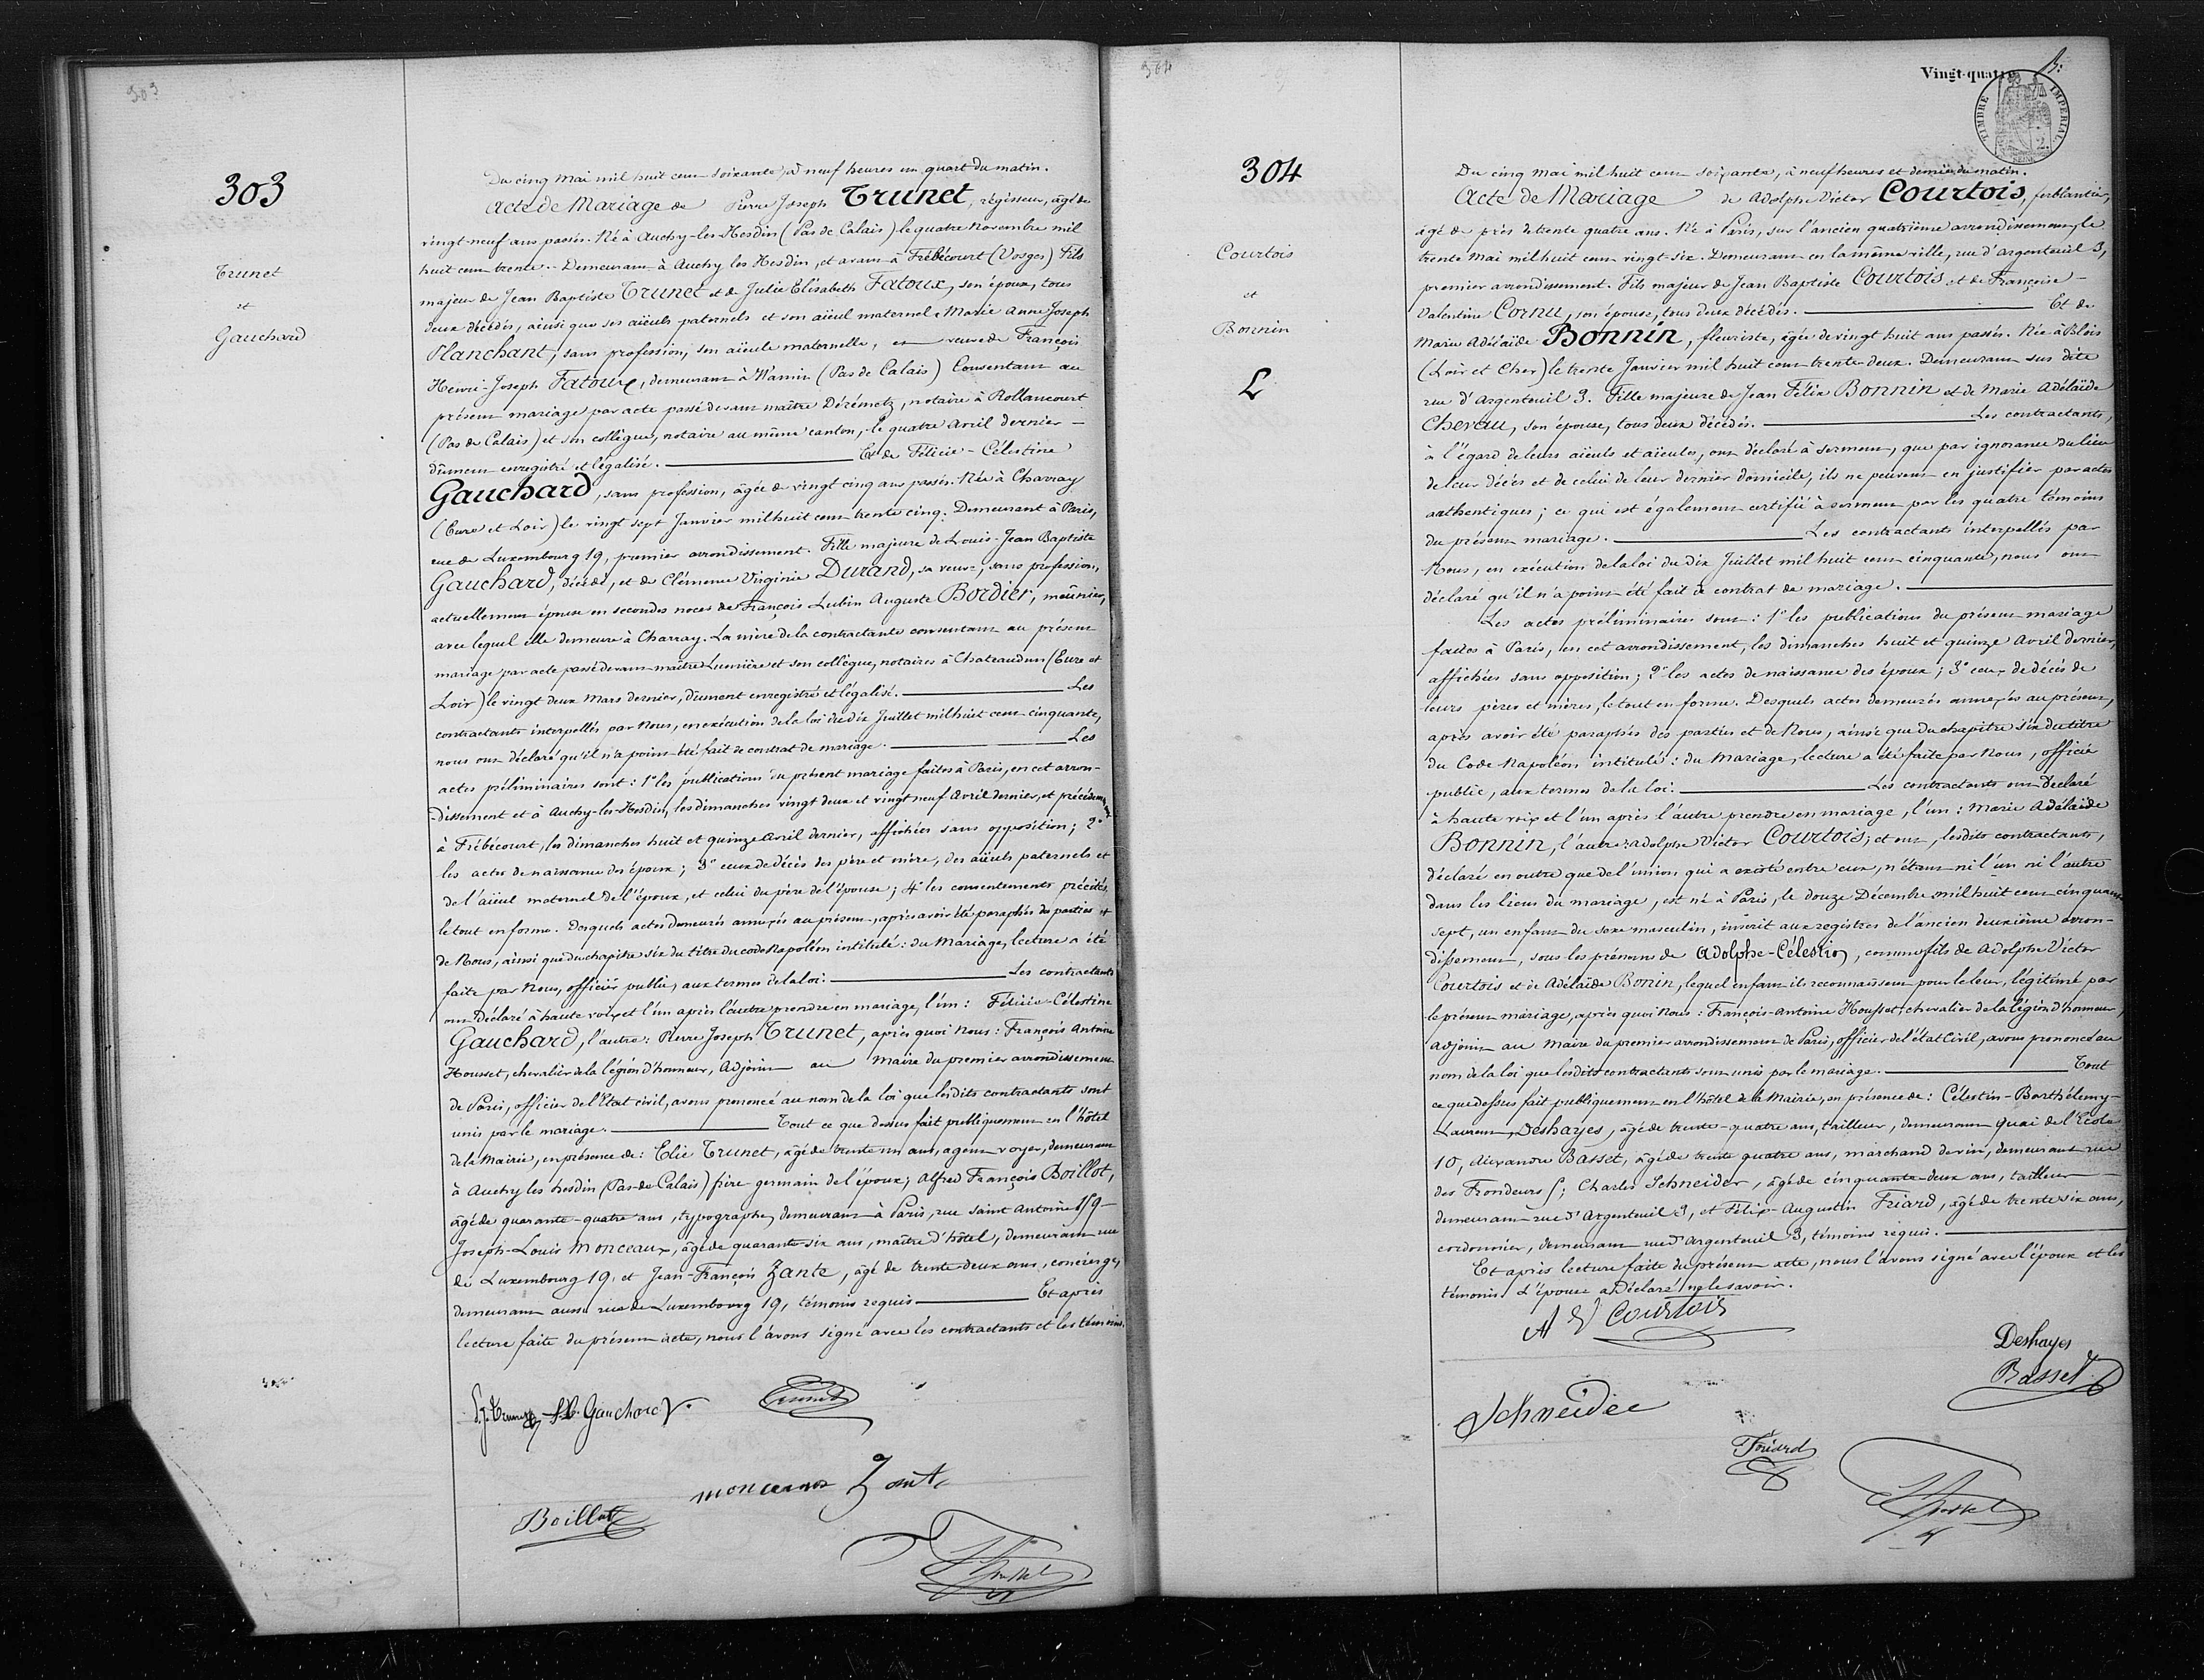 303
303
Trunet
et
Gauchard
Du cinq Mai mil huit cent soixante, à neuf heures un quart du matin.
Acte de Mariage de Pierre Joseph Trunet, régisseur, âgé de
vingt-neuf ans passés. Né à Auchy-les-Hesdin (Pas de Calais) le quatre Novembre mil
huit cent trente. - Demeurant à Auchy les Hesdin, et avant à Frébécourt (Vosges) Fils
majeur de Jean Baptiste Trunet et de Julie Elisabeth Fatoux, son épouse, tous
deux décédés, ainsi que ses aïeuls paternels et son aïeul maternel. Marie Anne Joseph
Planchant, sans profession, son aïeule maternelle, et veuve de François
Henri-Joseph Fatoux, demeurant à Wamin (Pas de Calais) Consentant au
présent mariage par acte passé devant maître Dérémetz, notaire à Rollancourt
(Pas de Calais) et son collègue, notaire au même canton, le quatre Avril dernier -
dûment enregistré et légalisé. Et de Félicie-Célestine
Gauchard, sans profession, âgée de vingt cinq ans passés. Née à Charray
(Eure et Loir) le vingt sept Janvier mil huit cent trente cinq. Demeurant à Paris,
rue de Luxembourg 19, premier arrondissement. Fille majeure de Louis-Jean Baptiste
Gauchard, décédé, et de Clémence Virginie Durand, sa veuve, sans profession,
actuellement épouse en secondes noces de François Lubin Auguste Bordier, meûnier,
avec lequel elle demeure à Charray. La mère de la contractante consentant au présent
mariage par acte passé devant maître Lumière et son collègue, notaires à Chateaudun (Eure et
Loir) le vingt deux Mars dernier, dûment enregistré et légalisé. Les
contractants interpellés par Nous, en exécution de la loi du dix Juillet mil huit cent cinquante,
nous ont déclaré qu'il n'a point été fait de contrat de mariage. Les
actes préliminaires sont : 1° les publications du présent mariage faites à Paris, en cet arron-
-dissement et à Auchy-les-Hesdin, les dimanches vingt deux et vingt neuf Avril dernier, et précédemment
à Frébécourt, les dimanches huit et quinze Avril dernier, affichées sans opposition ; 2°
les actes de naissance des époux ; 3° ceux de décès des père et mère, des aïeuls paternels et
de l'aïeul maternel de l'époux, et celui du père de l'épouse ; 4° les consentements précités,
le tout en forme. Desquels actes demeurés annexés au présent, après avoir été paraphés des parties et
de Nous, ainsi que du chapitre six du titre du code Napoléon intitulé : du Mariage, lecture a été
faite par Nous, officier public, aux termes de la loi. Les contractants
ont déclaré à haute voix et l'un après l'autre prendre en mariage, l'un : Félicie-Célestine
Gauchard, l'autre : Pierre Joseph Trunet, après quoi Nous : François Antoine
Housset, chevalier de la légion d'honneur, Adjoint au Maire du premier arrondissement
de Paris, officier de l'Etat civil, avons prononcé au nom de la loi que lesdits contractants sont
unis par le mariage. Tout ce que dessus fait publiquement en l'hôtel
de la Mairie, en présence de : Elie Trunet, âgé de trente un ans, agent voyer, demeurant
à Auchy les hesdin (Pas-de-Calais) frère germain de l'époux ; Alfred François Boillot,
âgé de quarante-quatre ans, typographe, demeurant à Paris, rue Saint Antoine 159 -
Joseph-Louis Monceaux, âgé de quarante-six ans, maître d'hôtel, demeurant rue
de Luxembourg 19, et Jean-François Zante, âgé de trente deux ans, concierge,
demeurant aussi rue de Luxembourg 19, témoins requis Et après
lecture faite du présent acte, nous l'avons signé avec les contractants et les témoins.
P. J. Trunet F. C. Gauchard Trunet
monceaux Zante
Boillot
304
Vingt-quatre
TIMBRE IMPERIAL
304
Courtois
et
Bonnin
L
Du cinq Mai mil huit cent soixante, à neuf heures et demie du matin.
Acte de Mariage de Adolphe Victor Courtois, ferblantier,
âgé de près de trente quatre ans. Né à Paris, sur l'ancien quatrième arrondissement, le
trente Mai mil huit cent vingt-six. Demeurant en la même ville, rue d'argenteuil 3,
premier arrondissement. Fils majeur de Jean Baptiste Courtois et de Françoise -
Valentine Cornu, son épouse, tous deux décédés. Et de
Marie Adélaïde Bonnin, fleuriste, âgée de vingt huit ans passés. Née à Blois
(Loir et Cher) le trente Janvier mil huit cent trente-deux. Demeurant sus dite
rue d'Argenteuil 3. Fille majeure de Jean Félix Bonnin et de Marie Adélaïde
Chereau, son épouse, tous deux décédés. Les contractants,
à l'égard de leurs aïeuls et aïeules, ont déclaré à serment, que par ignorance du lieu
de leur décès et de celui de leur dernier domicile, ils ne peuvent en justifier par actes
authentiques ; ce qui est également certifié à serment par les quatre témoins
du présent mariage. Les contractants interpellés par
Nous, en exécution de la loi du dix Juillet mil huit cent cinquante, nous ont
déclaré qu'il n'a point été fait de contrat de mariage.
Les actes préliminaires sont : 1° les publications du présent mariage
faites à Paris, en cet arrondissement, les dimanches huit et quinze Avril dernier,
affichées sans opposition ; 2° les actes de naissance des époux ; 3° ceux de décès de
leurs pères et mères, le tout en forme. Desquels actes demeurés annexés au présent,
après avoir été paraphés des parties et de Nous, ainsi que du chapitre six du titre
du Code Napoléon, intitulé : du Mariage, lecture a été faite par Nous, officier
public, aux termes de la loi. Les contractants ont déclaré
à haute voix et l'un après l'autre prendre en mariage, l'un : Marie Adélaïde
Bonnin, l'autre : Adolphe Victor Courtois ; et ont, lesdits contractants,
déclaré en outre que de l'union qui a existé entre eux, n'étant ni l'un ni l'autre
dans les liens du mariage, est né à Paris, le douze Décembre mil huit cent cinquante
sept, un enfant du sexe masculin, inscrit aux registres de l'ancien deuxième arron-
dissement, sous les prénoms de Adolphe-Célestin, comme fils de Adolphe Victor
Courtois et de Adélaïde Bonin, lequel enfant ils reconnaissent pour le leur, légitimé par
le présent mariage, après quoi Nous : François-Antoine Housset, chevalier de la légion d'honneur,
Adjoint au Maire du premier arrondissement de Paris, officier de l'état Civil, avons prononcé au
nom de la loi que lesdits contractants sont unis par le mariage. Tout
ce que dessus fait publiquement en l'hôtel de la Mairie, en présence de : Célestin-Barthélemy-
Laurent Deshayes, âgé de trente-quatre ans, tailleur, demeurant quai de l'Ecole
10, Alexandre Basset, âgé de trente quatre ans, marchand de vin, demeurant rue
des Frondeurs 5 ; Charles Schneider, âgé de cinquante-deux ans, tailleur
demeurant rue d'Argenteuil 3, et Félix-Augustin Friard, âgé de trente six ans,
cordonnier, demeurant rue d'argenteuil 3, témoins requis.
Et après lecture faite du présent acte, nous l'avons signé avec l'époux et les
témoins. L'épouse a déclaré ne le savoir.
A V Courtois
Deshayes
Basset
Schneider
Friard